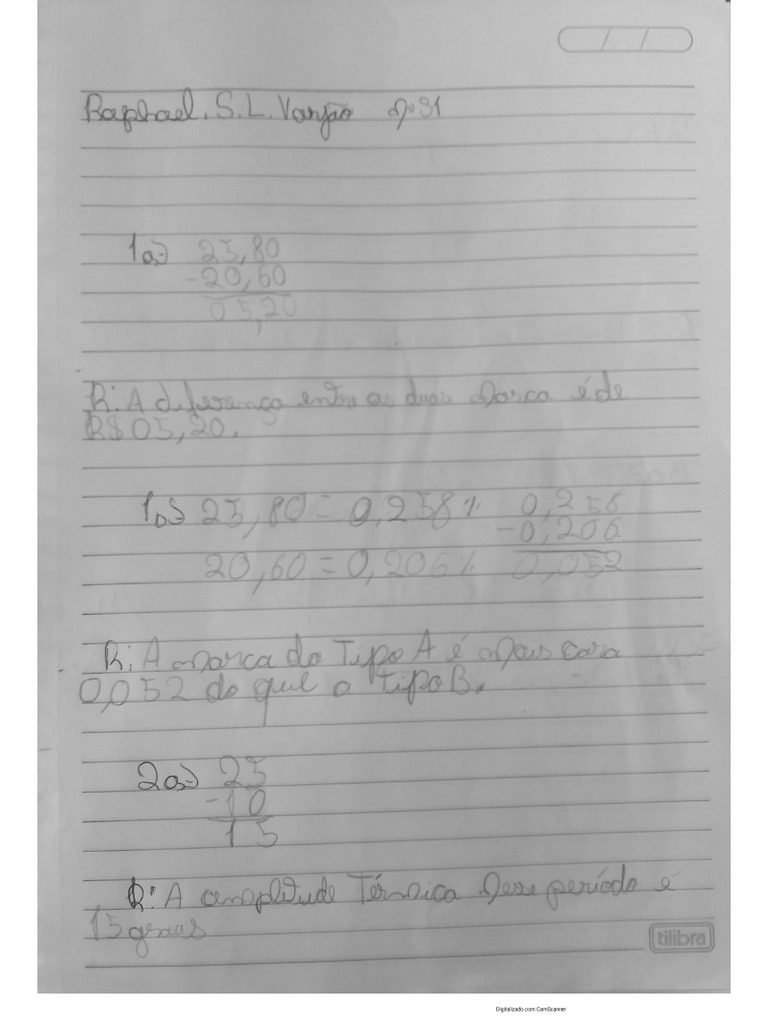 Raphael. S. L. Varjão nº 31
1a) 25,80
-20,60
05,20
R: A diferença entre as duas marca é de
R$ 05,20.
1b) 25,80 = 0,258% 0,258
-0,206
20,60 = 0,206% 0,052
R: A marca do Tipo A é mais cara
0,052 do que a tipo B.
2a) 25
-10
15
R: A amplitude Térmica desse período é
15 graus
tilibra
Digitalizado com CamScanner